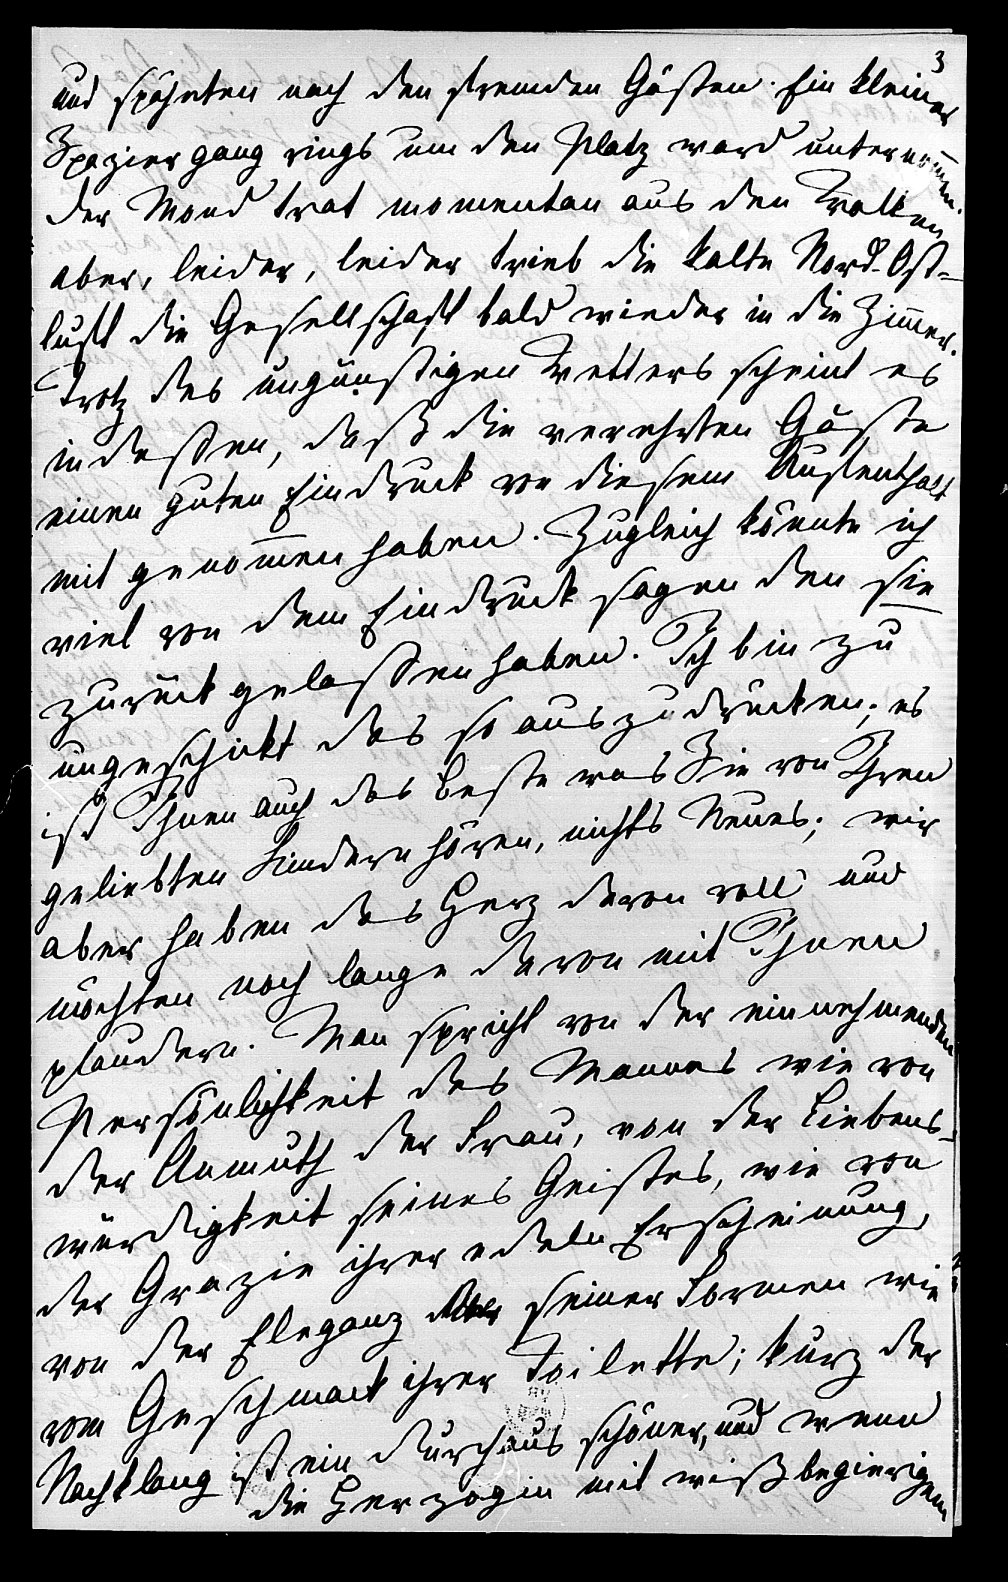 3
und spähten nach den fremden Gästen. Ein kleiner
Spaziergang rings um den Platz ward unternom̄en.
der Mond trat momentan aus den Wolken
aber, leider, leider trieb die kalte Nord-Ost-
luft die Gesellschaft bald wieder in die Zim̄er.
Trotz des ungünstigen Wetters scheint es
indessen, daß die verehrten Gäste
einen guten Eindruck von diesem Aufenthalt
mit genom̄en haben. Zugleich könnte ich
viel von dem Eindruck sagen den sie
zurück gelassen haben. Ich bin zu
ungeschickt das so auszudrücken; es
ist Ihnen auch das Beste was Sie von Ihren
geliebten Kindern hören, nichts Neues; wir
aber haben das Herz davon voll und
möchten noch lange davon mit Ihnen
plaudern. Man spricht von der einnehmenden
Persönlichkeit des Mannes wie von
der Anmuth der Frau, von der Liebens-
würdigkeit seines Geistes, wie von
der Grazie ihrer edeln Erscheinung,
von der Eleganz seiner Formen wie
vom Geschmack ihrer Toilette; kurz der
Nachklang ist ein durchaus schöner, und wenn
die Herzogin mit wißbegierigem